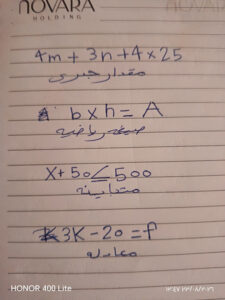 NOVARA
HOLDING
4m + 3n + 4 × 25
مقدار جبري
b × h = A
صيغة رياضية
x + 50 ≤ 500
متباينة
3K - 20 = f
معادلة
HONOR 400 Lite